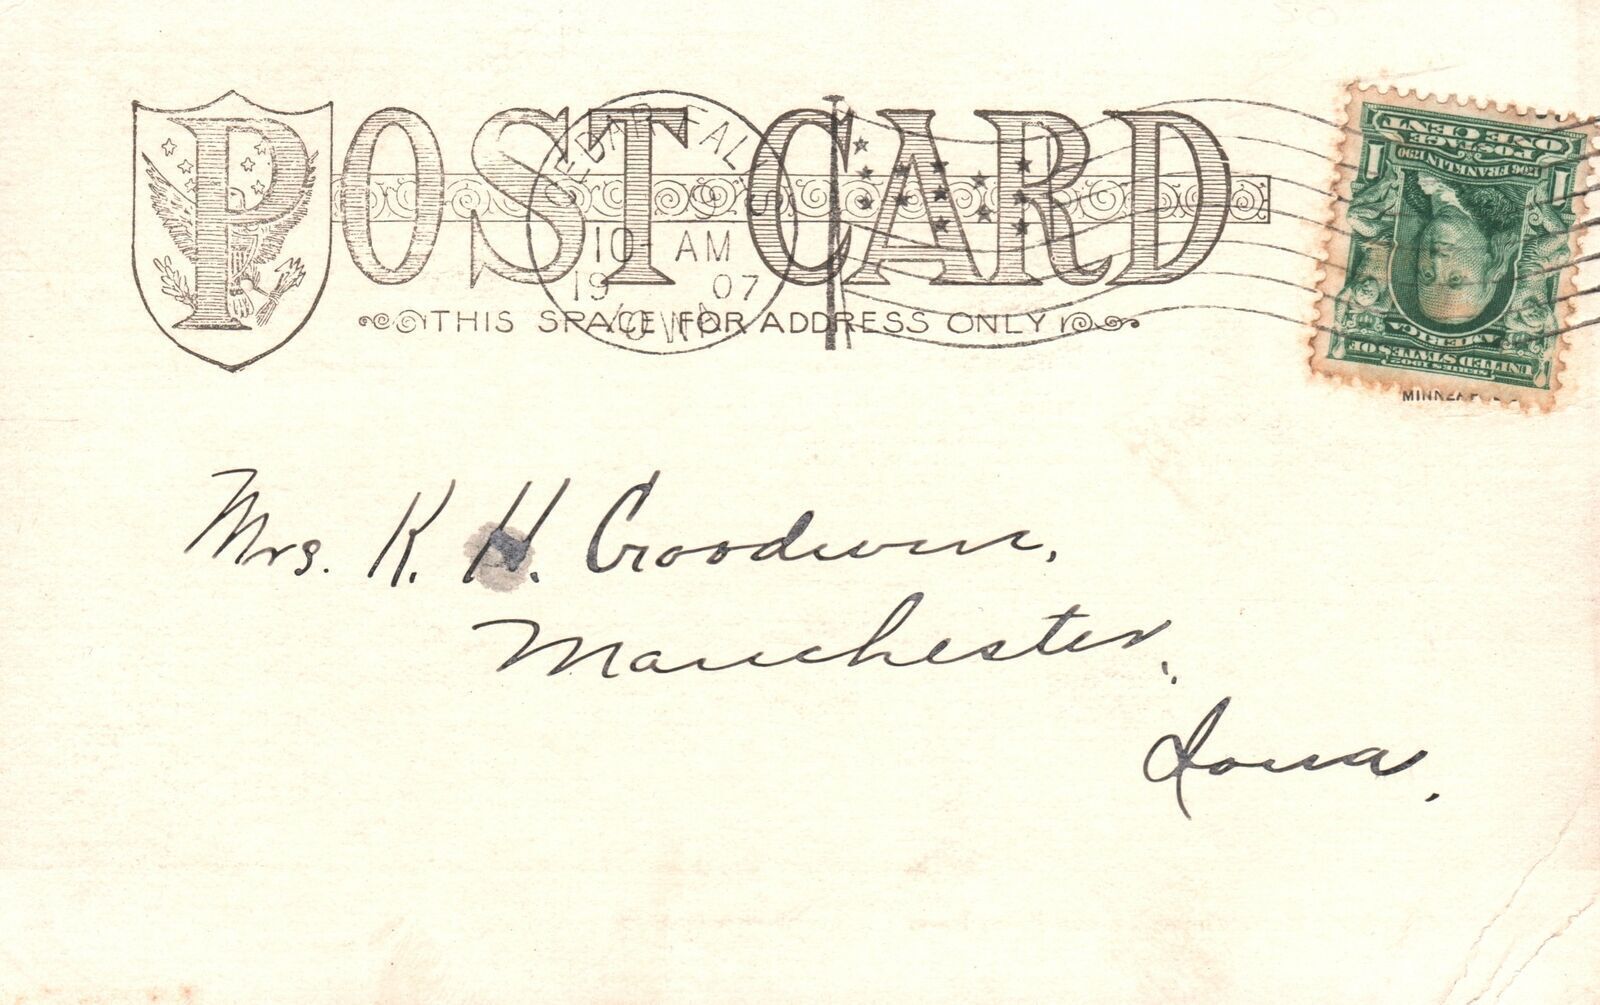 POST CARD
THIS SPACE FOR ADDRESS ONLY
CEDAR FALLS
9
10 AM
1907
IOWA
POSTAGE
ONE CENT
1 1
FRANKLIN 1790
UNITED STATES OF
AMERICA
SERIES 1902
Mrs. K. H. Goodwin,
Manchester,
Iowa.